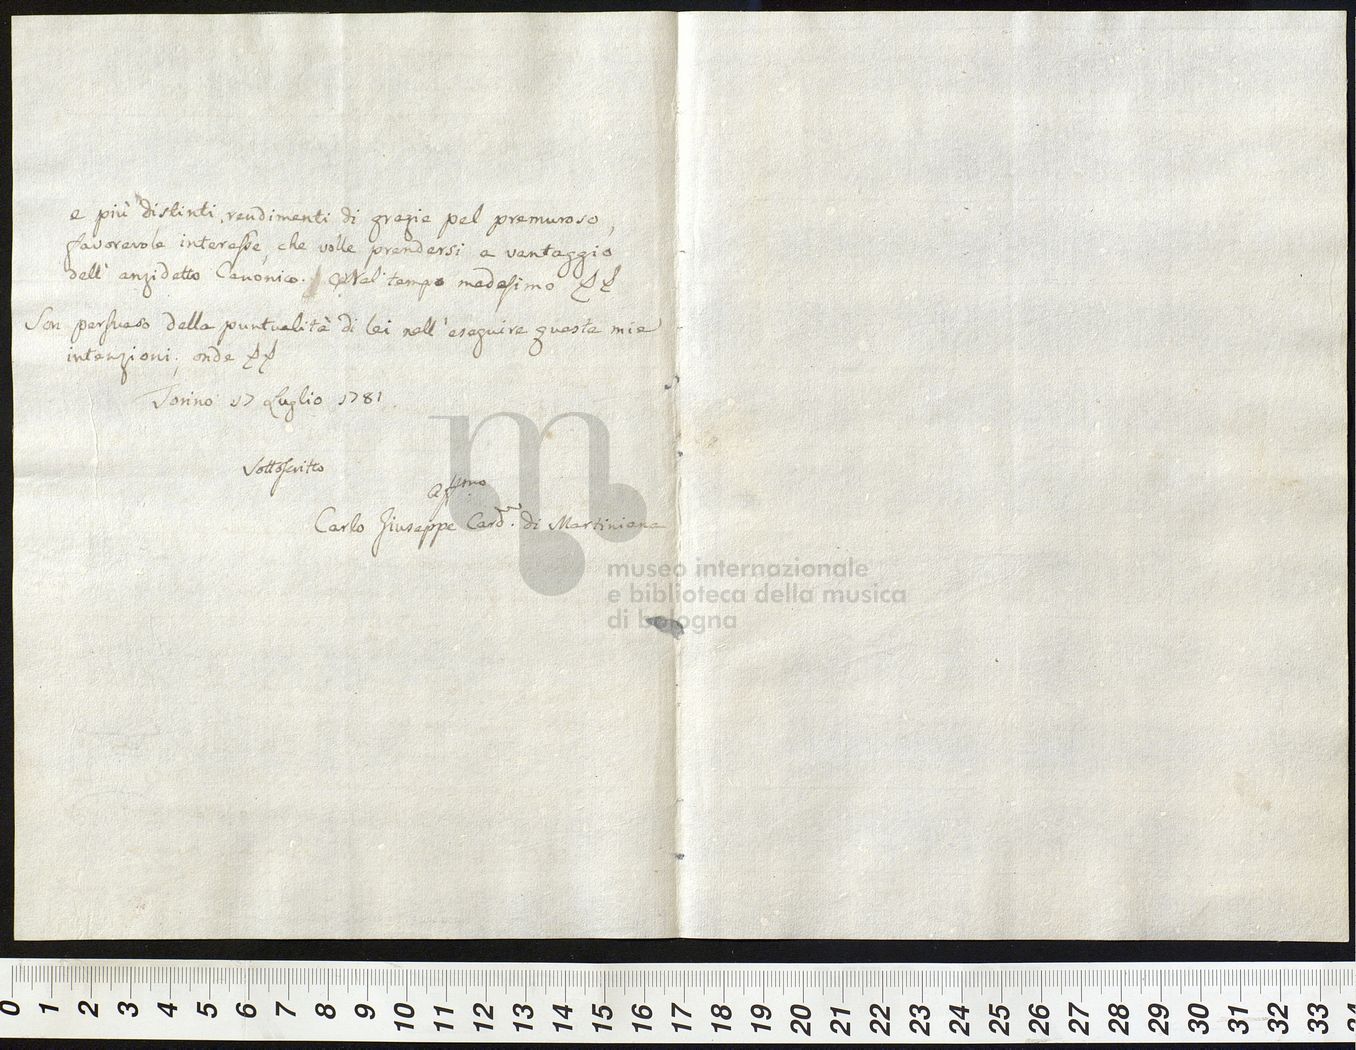 e più distinti rendimenti di grazie pel premuroso,
favorevole interesse, che volle prendersi a vantaggio
dell' anzidetto Canonico. Nel tempo medesimo
Son persuaso della puntualità di lei nell' eseguire queste mie
intenzioni; onde
Torino 17 Luglio 1781.
Sottoscritto
Aff.mo
Carlo Giuseppe Card. di Martiniana
museo internazionale
e biblioteca della musica
di bologna
0 1 2 3 4 5 6 7 8 9 10 11 12 13 14 15 16 17 18 19 20 21 22 23 24 25 26 27 28 29 30 31 32 33 34